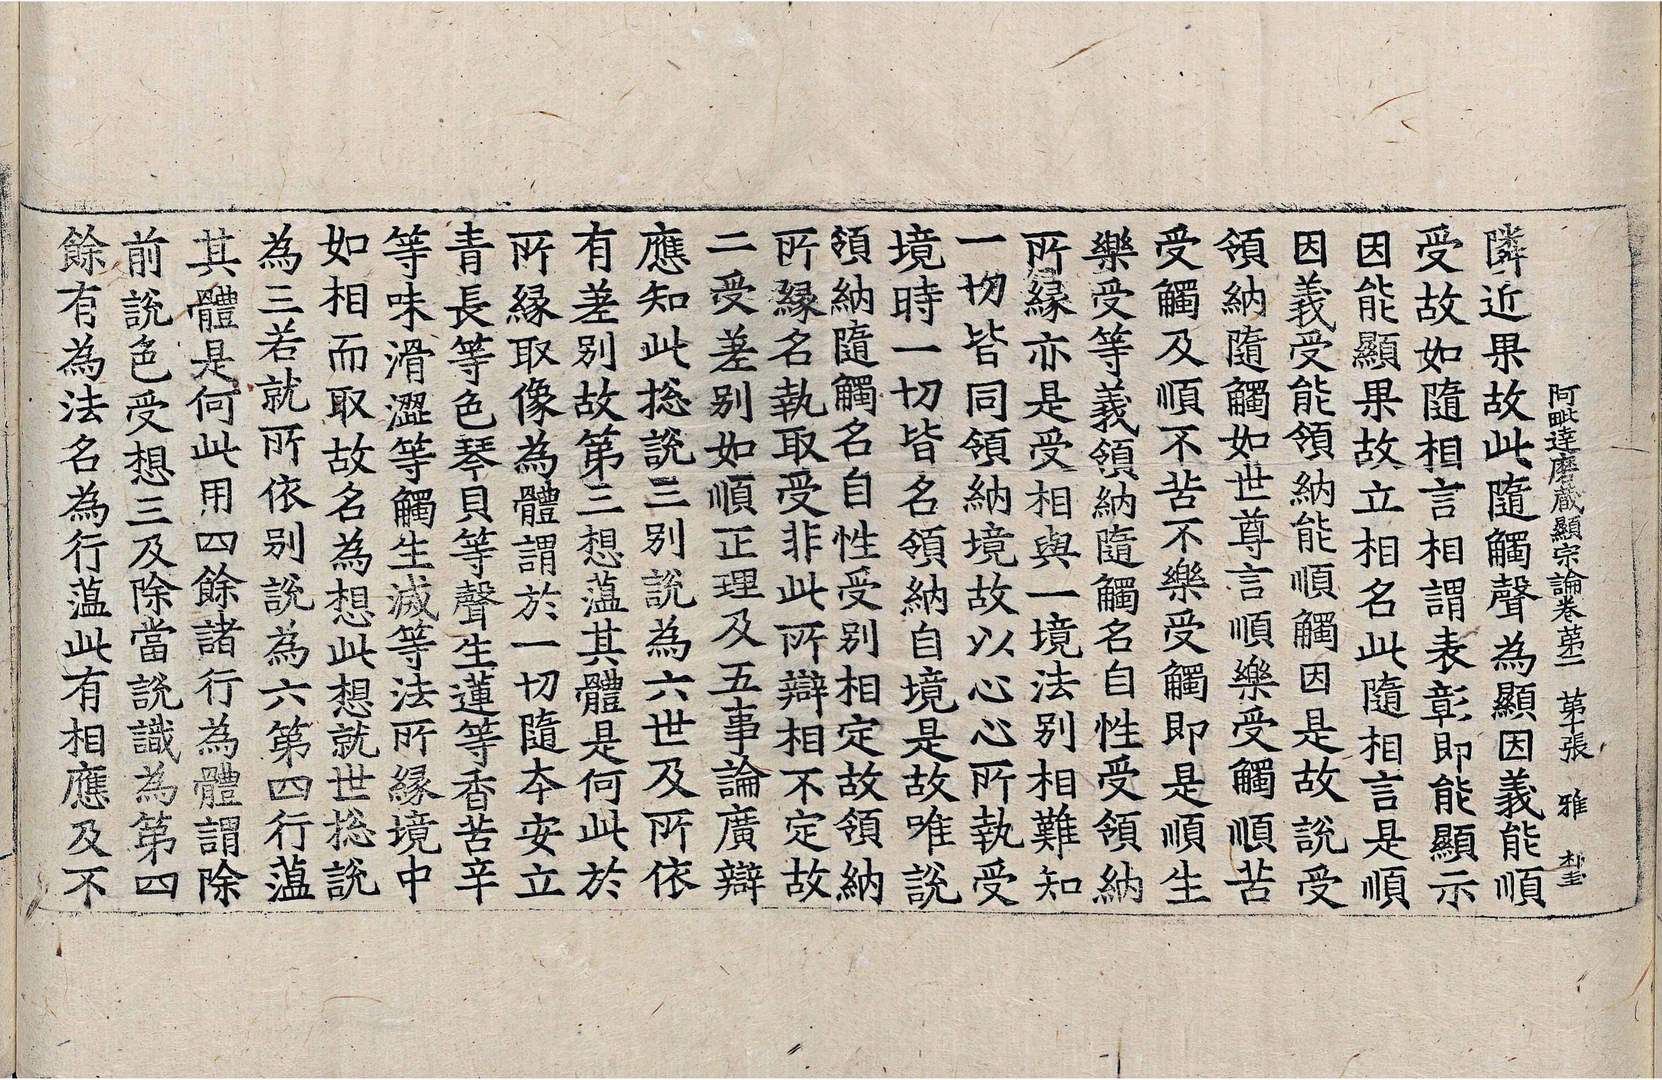 阿毗達磨藏顯宗論卷第二　第十張　雅
隣近果故此隨觸聲為顯因義能順
受故如隨相言相謂表彰即能顯示
因能顯果故立相名此隨相言是順
因義受能領納能順觸因是故說受
領納隨觸如世尊言順樂受觸順苦
受觸及順不苦不樂受觸即是順生
樂受等義領納隨觸名自性受領納
所緣亦是受相與一境法別相難知
一切皆同領納境故以心心所執受
境時一切皆名領納自境是故唯說
領納隨觸名自性受別相定故領納
所緣名執取受非此所辯相不定故
二受差別如順正理及五事論廣辯
應知此捴說三別說為六世及所依
有差別故第三想薀其體是何此於
所緣取像為體謂於一切隨本安立
青長等色琴貝等聲生蓮等香苦辛
等味滑澀等觸生滅等法所緣境中
如相而取故名為想此想就世捴說
為三若就所依別說為六第四行薀
其體是何此用四餘諸行為體謂除
前說色受想三及除當說識為第四
餘有為法名為行薀此有相應及不